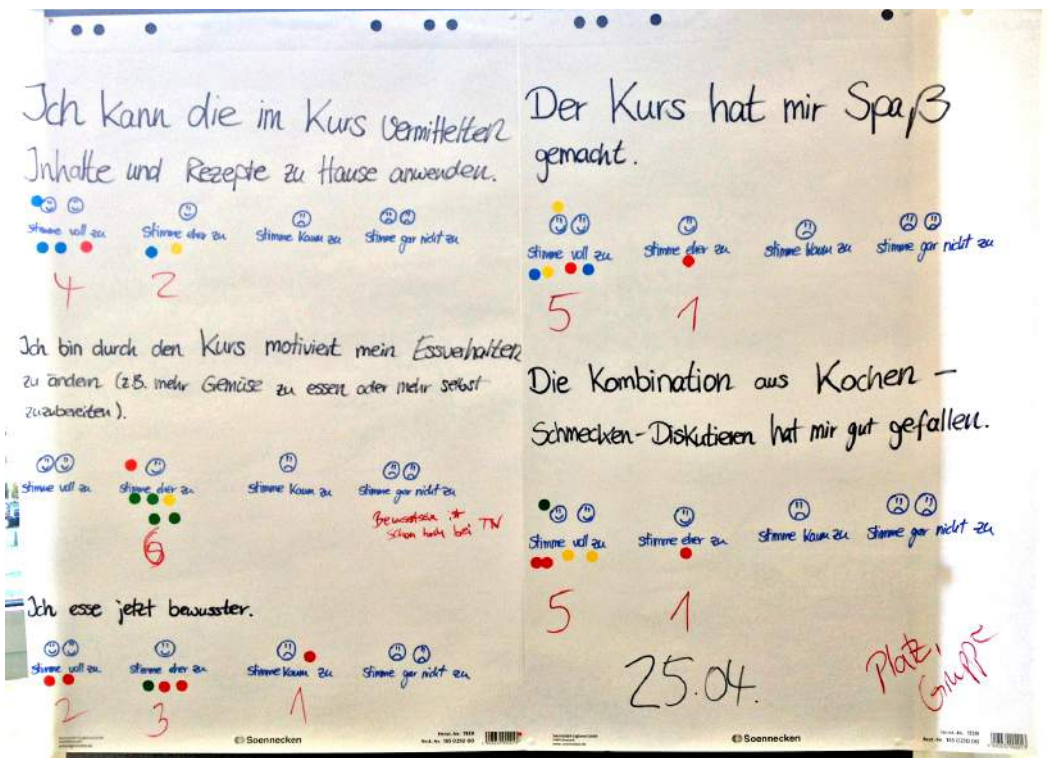 Ich kann die im Kurs vermittelten
Inhalte und Rezepte zu Hause anwenden.
stimme voll zu stimme eher zu stimme kaum zu stimme gar nicht zu
4 2
Ich bin durch den Kurs motiviert mein Essverhalten
zu ändern (z.B. mehr Gemüse zu essen oder mehr selbst
zuzubereiten).
stimme voll zu stimme eher zu stimme kaum zu stimme gar nicht zu
Bewusstsein ist
schon hoch bei TN
6
Ich esse jetzt bewusster.
stimme voll zu stimme eher zu stimme kaum zu stimme gar nicht zu
2 3 1
Soennecken
Der Kurs hat mir Spaß
gemacht.
stimme voll zu stimme eher zu stimme kaum zu stimme gar nicht zu
5 1
Die Kombination aus Kochen –
Schmecken-Diskutieren hat mir gut gefallen.
stimme voll zu stimme eher zu stimme kaum zu stimme gar nicht zu
5 1
25.04.
Platz,
Gruppe
Soennecken